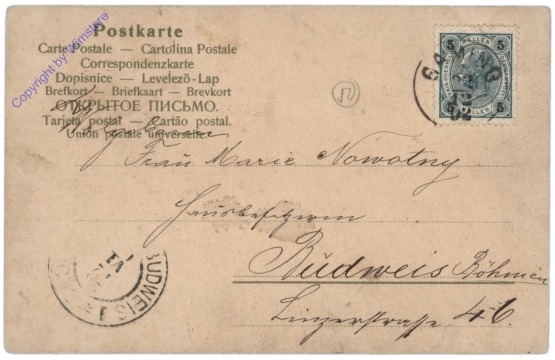 Postkarte
Carte Postale — Cartolina Postale
Correspondenzkarte
Dopisnice — Levelező-Lap
Brefkort — Briefkaart — Brevkort
ОТКРЫТОЕ ПИСЬМО.
Tarjeta postal — Cartão postal.
Union postale universelle.
Copyright by Wimstore
5 5
5 5
GAMING
50
Frau Marie Nowotny
Hausbesitzerin
Budweis Böhmen
Linzerstrasse 46.
BUDWEIS 1